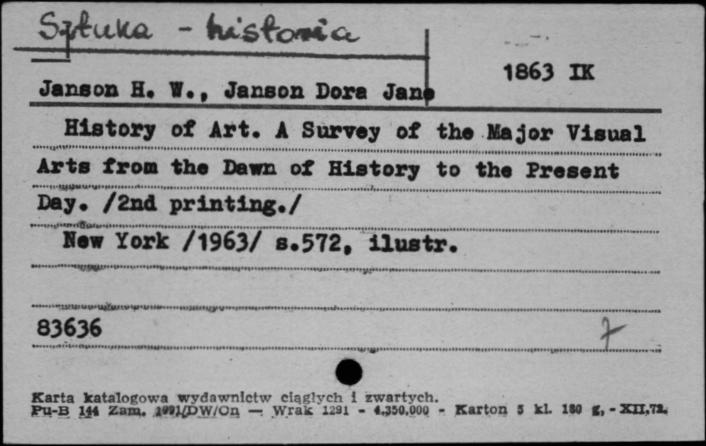 Sztuka - historia
1863 IK
Janson H. W., Janson Dora Jane
History of Art. A Survey of the Major Visual
Arts from the Dawn of History to the Present
Day. /2nd printing./
New York /1963/ s.572, ilustr.
83636
7
Karta katalogowa wydawnictw ciągłych i zwartych.
Pu-B 144 Zam. 1991/DW/On — Wrak 1291 - 4.350.000 - Karton 5 kl. 180 g, - XII.72.